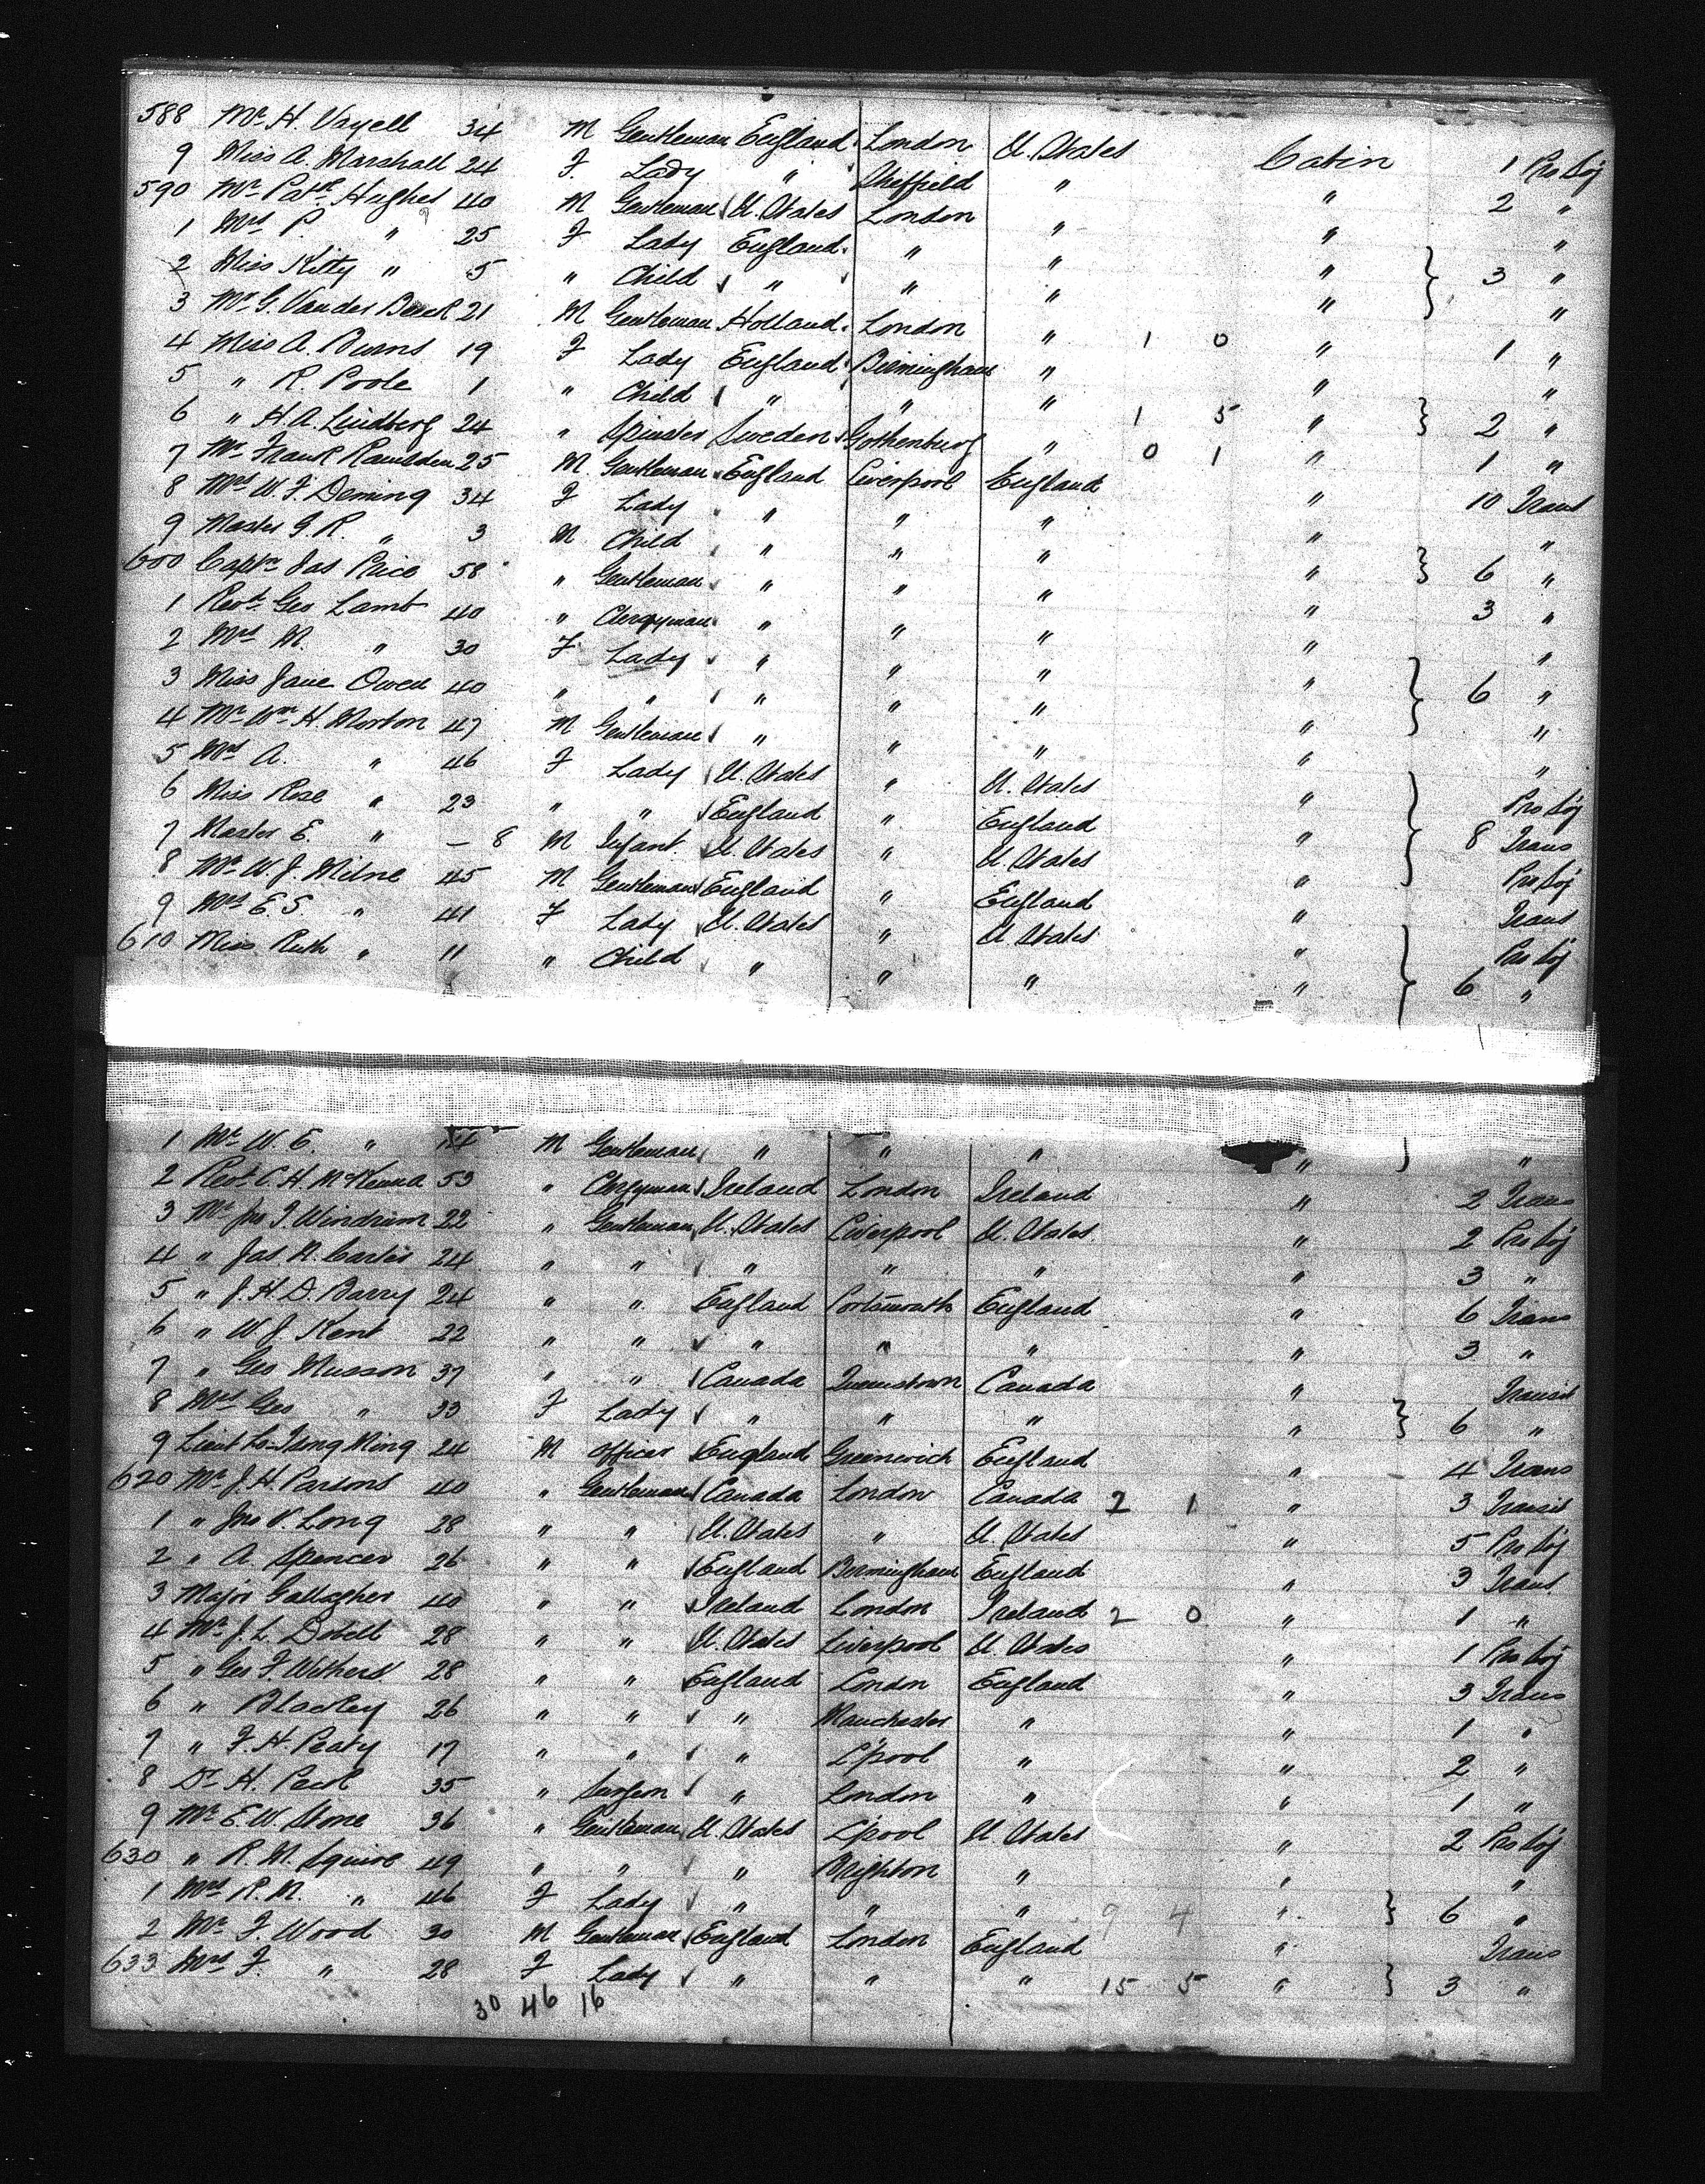 588 Mr H. Vayell 34 M Gentleman England London U. States Cabin 1 Pro Soj
9 Miss A. Marshall 24 F Lady " Sheffield " " 2 "
590 Mr Patk Hughes 40 M Gentleman U. States London " " "
1 Mrs P. " 25 F Lady England " " " 3 "
2 Miss Kitty " 5 " Child " " " " "
3 Mr G. Vander 21 M Gentleman Holland London " 1 0 " 1 "
4 Miss A. Burns 19 F Lady England Birmingham " " "
5 " R. Poole 1 " Child " " " 1 5 " 2 "
6 " H. A. Lindberg 24 " Spinster Sweden Gothenburg " 0 1 " 1 "
7 Mr Frank Ramsden 25 M Gentleman England Liverpool England " 10 Trans
8 Mrs W. F. Deming 34 F Lady " " " " "
9 Master G. R. " 3 M Child " " " " 6 "
600 Captn Jas Price 58 " Gentleman " " " " 3 "
1 Revd Geo Lamb 40 " Clergyman " " " " "
2 Mrs M. " 30 F Lady " " " " 6 "
3 Miss Jane Owen 40 " " " " " " "
4 Mr Wm H. Morton 47 M Gentleman " " " " "
5 Mrs A. " 46 F Lady U. States " U. States " Pro Soj
6 Miss Rose " 23 " " England " England " 8 Trans
7 Master E. " — 8 M Infant U. States " U. States " Pro Soj
8 Mr W. J. Milne 45 M Gentleman England " England " Trans
9 Mrs E. S. " 41 F Lady U. States " U. States " Pro Soj
610 Miss Ruth " 11 " Child " " " " 6 "
1 Mr W. E. " 14 M Gentleman " " " " "
2 Revd C. H. McKenna 53 " Clergyman Ireland London Ireland " 2 Trans
3 Mr Jno J. Windrim 22 " Gentleman U. States Liverpool U. States " 2 Pro Soj
4 " Jas. R. Carter 24 " " " " " " 3 "
5 " J. H. D. Barry 24 " " England Portsmouth England " 6 Trans
6 " W. J. Kent 22 " " " " " " 3 "
7 " Geo Musson 37 " " Canada Queenstown Canada " Transit
8 Mrs Geo " 33 F Lady " " " " 6 "
9 Lieut Lo Tsing Ming 24 M Officer England Greenwich England " 4 Trans
620 Mr J. H. Parsons 40 " Gentleman Canada London Canada 2 1 " 3 Transit
1 " Jno V. Long 28 " " U. States " U. States " 5 Pro Soj
2 " A. Spencer 26 " " England Birmingham England " 3 Trans
3 Major Gallagher 40 " " Ireland London Ireland 2 0 " 1 "
4 Mr J. L. Dobell 28 " " U. States Liverpool U. States " 1 Pro Soj
5 " Geo F. Withers 28 " " England London England " 3 Trans
6 " Blackley 26 " " " Manchester " " 1 "
7 " F. H. Peaty 17 " " " L'pool " " 2 "
8 Dr H. Paul 35 " Surgeon " London " " 1 "
9 Mr E. W. Stone 36 " Gentleman U. States L'pool U. States " 2 Pro Soj
630 " R. M. Squire 49 " " " Brighton " " "
1 Mrs R. M. " 46 F Lady " " " 9 4 " 6 "
2 Mr F. Wood 30 M Gentleman England London England " Trans
633 Mrs F. " 28 F Lady " " " 15 5 " 3 "
30 46 16